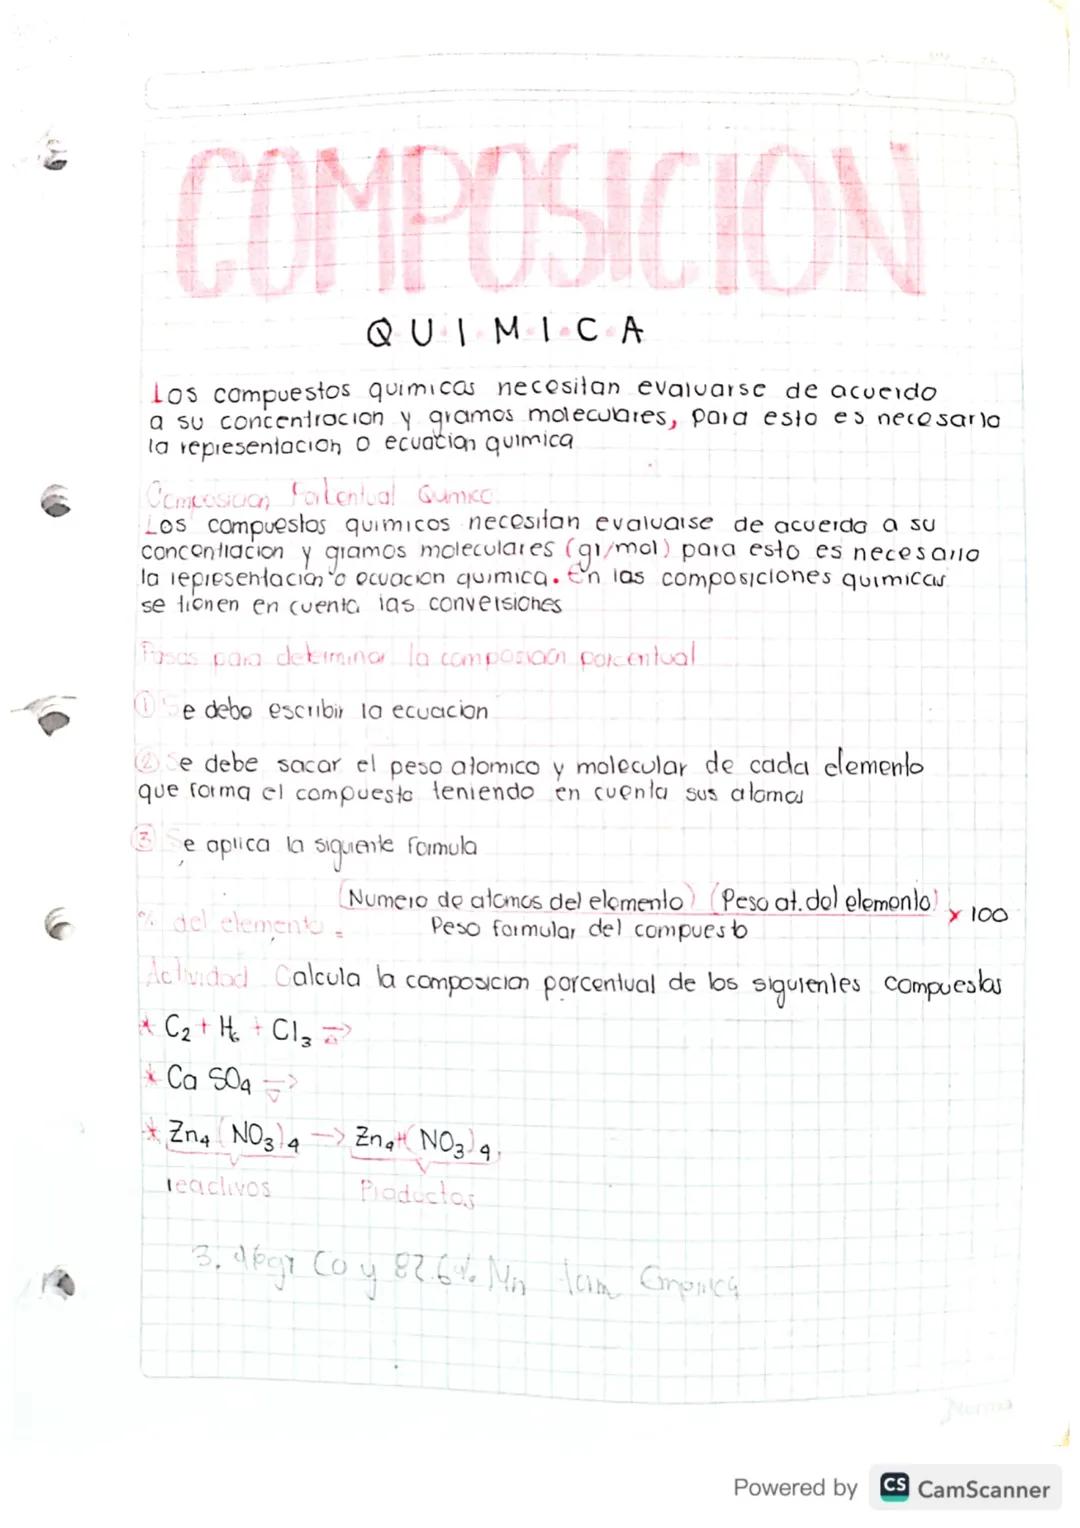 COMPOSICION
QUIMICA
Los compuestos quimicos necesitan evaluarse de acuerdo
a su concentracion y gramos moleculares, para esto es necesario
la representacion o ecuacion quimica
Composicion Porcentual Quimica
Los compuestos quimicos necesitan evaluarse de acuerdo a su
concentracion y gramos moleculares (gr/mol) para esto es necesario
la representacion o ecuacion quimica. En las composiciones quimicas
se tienen en cuenta las conversiones
Pasos para determinar la composicion porcentual
① Se debe escribir la ecuacion
② Se debe sacar el peso atomico y molecular de cada elemento
que forma el compuesto teniendo en cuenta sus atomos
③ Se aplica la siguiente formula
(Numero de atomos del elemento) (Peso at. del elemento) x 100
% del elemento = Peso formular del compuesto
Actividad Calcula la composicion porcentual de los siguientes compuestos
* C₂ + H₆ + Cl₃ →
* Ca SO₄ →
* Zn₄ (NO₃)₄ → Zn₄+(NO₃)₄.
reactivos Productos
3. 46gr Co y 82.6% Mn
Norma
Powered by CS CamScanner